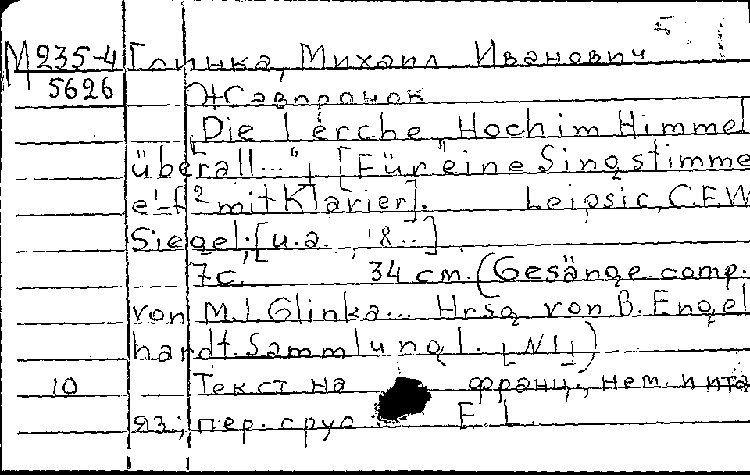 М 235-4 Глинка, Михаил Иванович
5626 Жаворонок
Die Lerche „Hoch im Himmel
überall..." [Für eine Singstimme
e'-f² mit Klavier]. Leipsic, C.F.W
Siegel. [u.a., 8..]
7с. 34 cm. (Gesänge comp.
von M.I. Glinka... Hrsg von B. Engel
hardt. Sammlung I. [N1])
10 Текст на франц., нем. и ита
яз.; пер. с рус